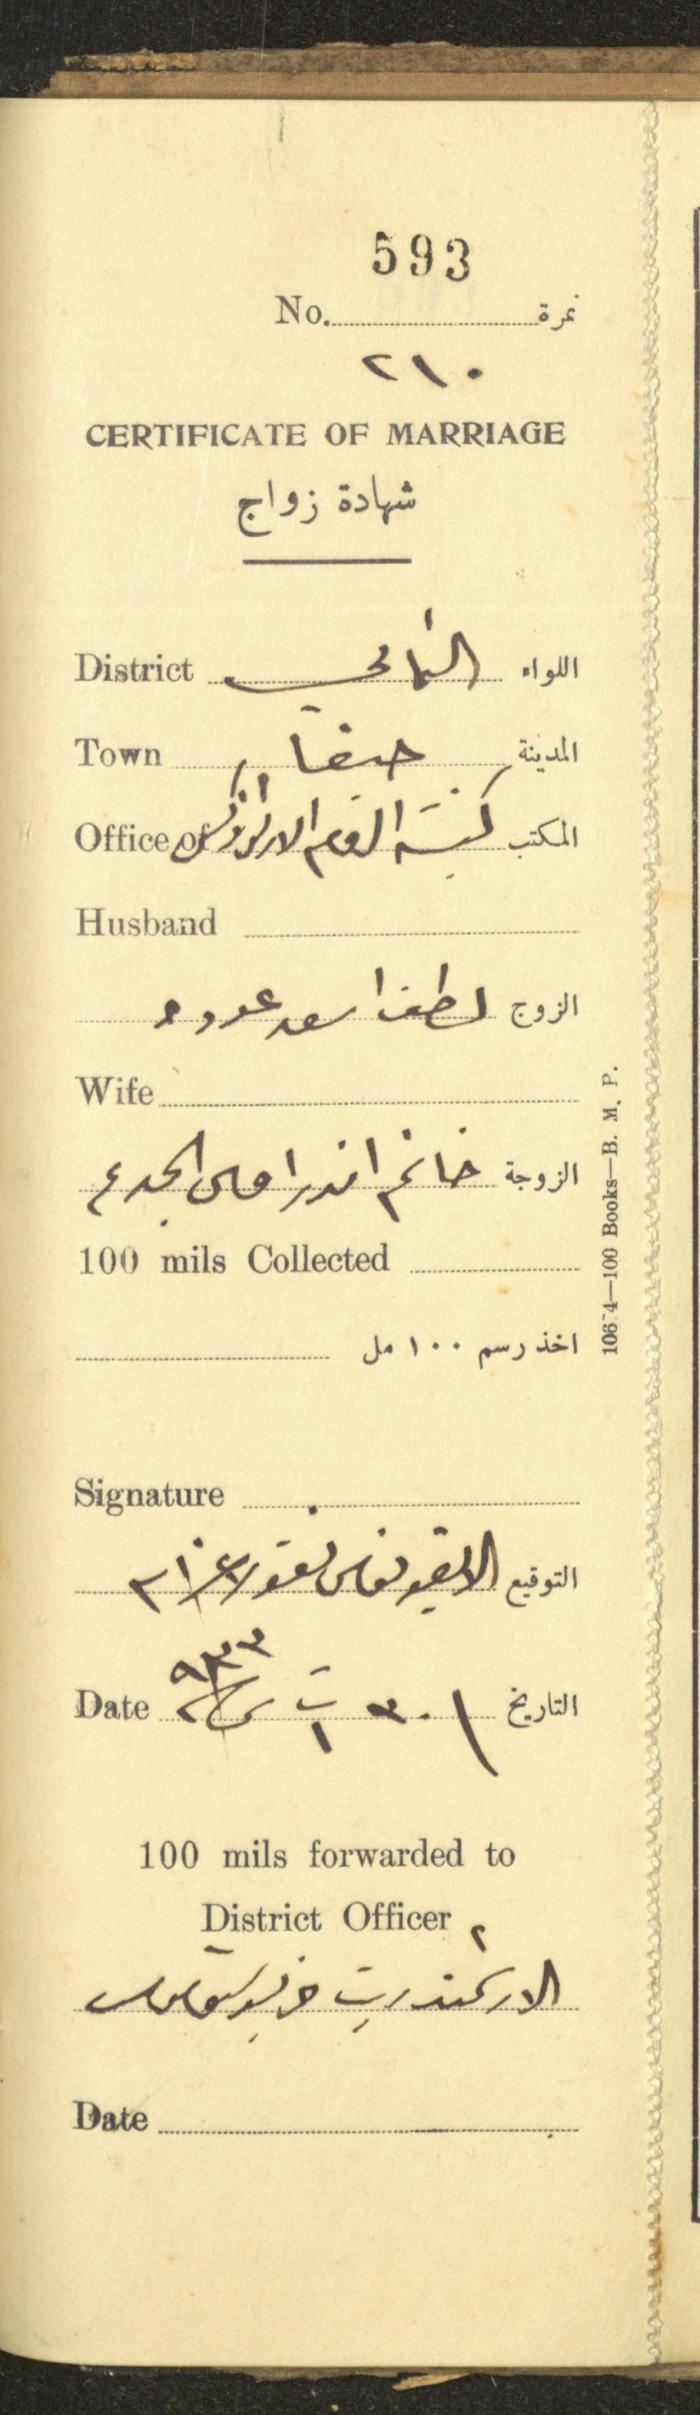 593
No. نمرة
٢١٠
CERTIFICATE OF MARRIAGE
شهادة زواج
District الشمالي اللواء
Town حيفا المدينة
Office of كنيسة الروم الارثوذكس المكتب
Husband
الزوج لطف اسعد عبود
Wife
الزوجة خانم اندراوس الجدع
100 mils Collected
اخذ رسم ١٠٠ مل
Signature
التوقيع
Date ٣٠ ت١ سنة ٩٣٣ التاريخ
100 mils forwarded to
District Officer
الارشمندريت
Date
106 4—100 Books—B. M. P.